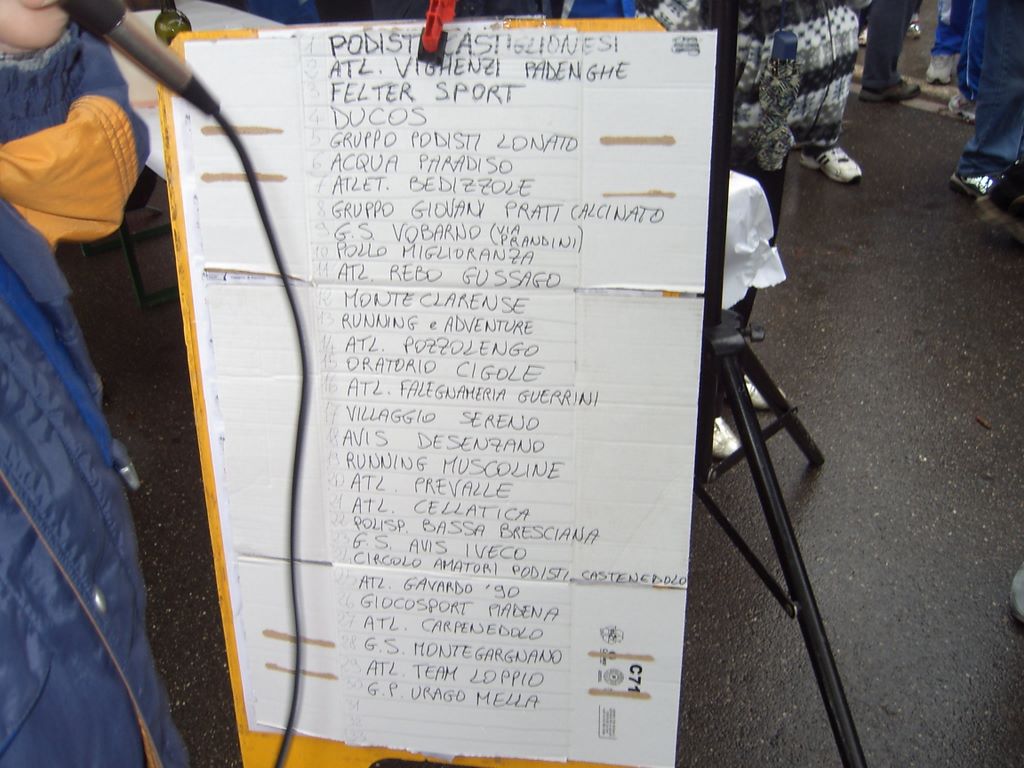 1 PODISTI CASTIGLIONESI
2 ATL. VIGHENZI PADENGHE
3 FELTER SPORT
4 DUCOS
5 GRUPPO PODISTI LONATO
6 ACQUA PARADISO
7 ATLET. BEDIZZOLE
8 GRUPPO GIOVANI PRATI CALCINATO
9 G.S. VOBARNO (VIA PRANDINI)
10 POLLO MIGLIORANZA
11 ATL. REBO GUSSAGO
12 MONTECLARENSE
13 RUNNING e ADVENTURE
14 ATL. POZZOLENGO
15 ORATORIO CIGOLE
16 ATL. FALEGNAMERIA GUERRINI
17 VILLAGGIO SERENO
18 AVIS DESENZANO
19 RUNNING MUSCOLINE
20 ATL. PREVALLE
21 ATL. CELLATICA
22 POLISP. BASSA BRESCIANA
23 G.S. AVIS IVECO
24 CIRCOLO AMATORI PODISTI CASTENEDOLO
25 ATL. GAVARDO '90
26 GIOCOSPORT PIADENA
27 ATL. CARPENEDOLO
28 G.S. MONTEGARGNANO
29 ATL. TEAM LOPPIO
30 G.P. URAGO MELLA
31
32
33
C71